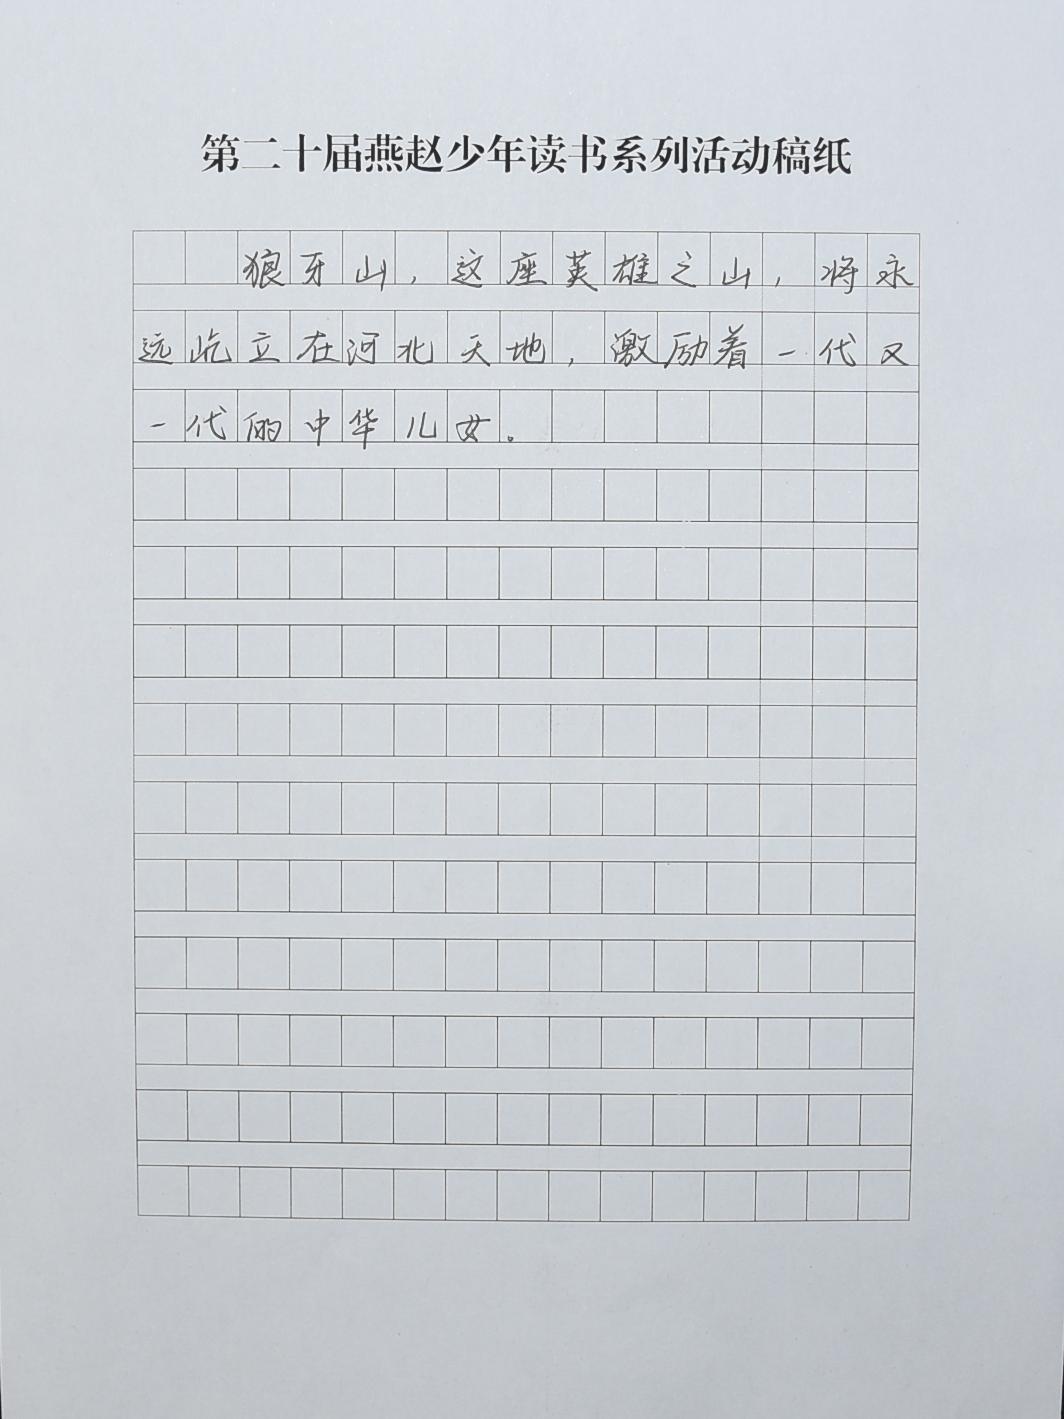 第二十届燕赵少年读书系列活动稿纸
狼牙山，这座英雄之山，将永
远屹立在河北天地，激励着一代又
一代的中华儿女。